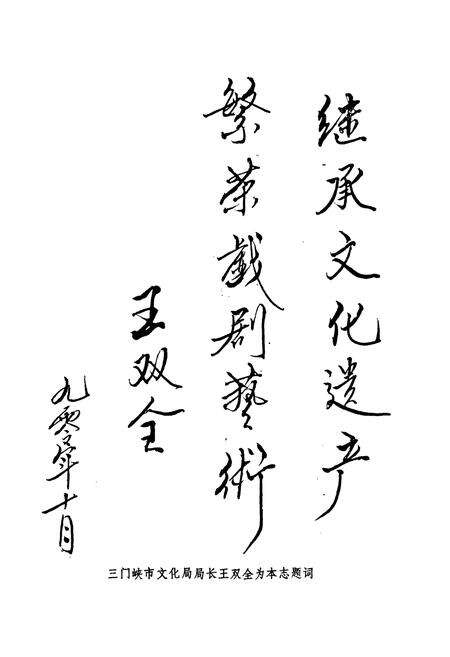 继承文化遗产
繁荣戱剧藝術
王双全
九零年十月
三门峡市文化局局长王双全为本志题词